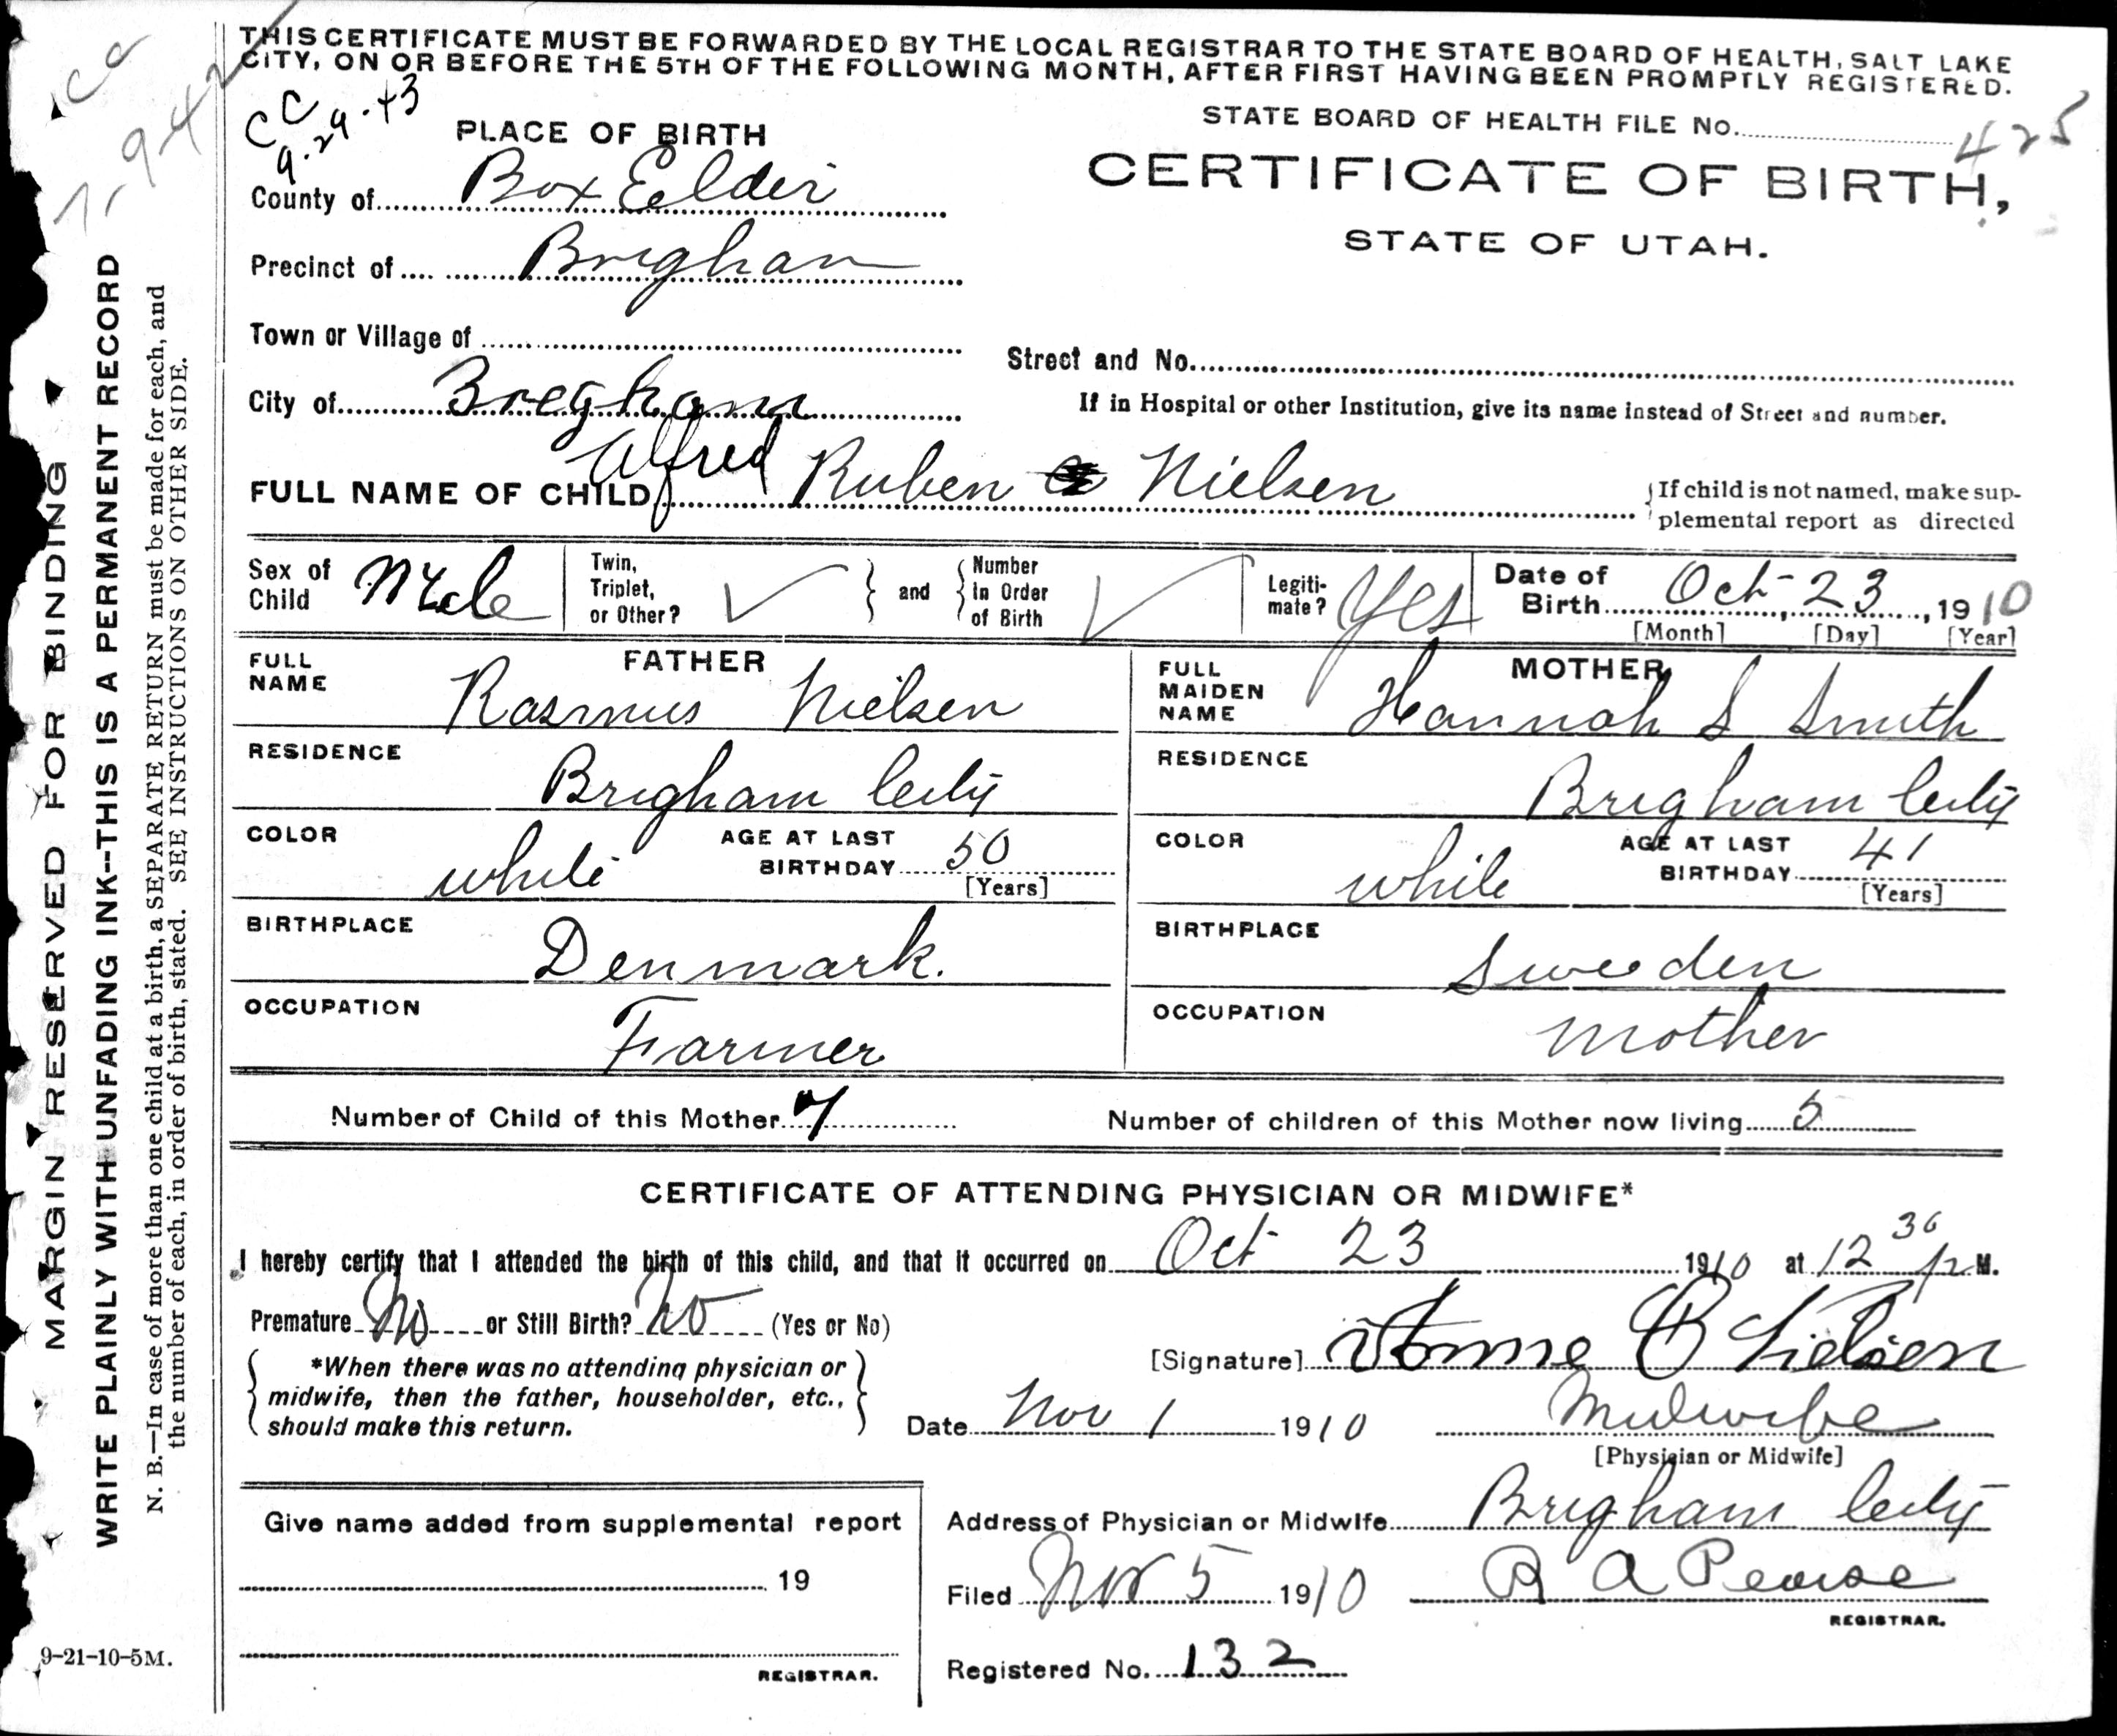 THIS CERTIFICATE MUST BE FORWARDED BY THE LOCAL REGISTRAR TO THE STATE BOARD OF HEALTH, SALT LAKE
CITY, ON OR BEFORE THE 5TH OF THE FOLLOWING MONTH, AFTER FIRST HAVING BEEN PROMPTLY REGISTERED.
CC
9.29.43
STATE BOARD OF HEALTH FILE NO. 425
PLACE OF BIRTH
CERTIFICATE OF BIRTH,
STATE OF UTAH.
County of Box Elder
Precinct of Brigham
Town or Village of
Street and No.
City of Brigham
If in Hospital or other Institution, give its name instead of Street and number.
FULL NAME OF CHILD Alfred Ruben Nielsen
If child is not named, make sup-
plemental report as directed
Sex of Child Male
Twin, Triplet, or Other? ✓ and Number In Order of Birth ✓
Legiti-mate? Yes
Date of Birth Oct 23, 1910
[Month] [Day] [Year]
FATHER
FULL NAME Rasmus Nielsen
RESIDENCE Brigham City
COLOR white AGE AT LAST BIRTHDAY 50
[Years]
BIRTHPLACE Denmark.
OCCUPATION Farmer
MOTHER
FULL MAIDEN NAME Hannah S Smith
RESIDENCE Brigham City
COLOR white AGE AT LAST BIRTHDAY 41
[Years]
BIRTHPLACE Sweden
OCCUPATION Mother
Number of Child of this Mother 7 Number of children of this Mother now living 5
CERTIFICATE OF ATTENDING PHYSICIAN OR MIDWIFE*
I hereby certify that I attended the birth of this child, and that it occurred on Oct 23 1910 at 12 30 P M.
Premature No or Still Birth? No (Yes or No)
*When there was no attending physician or
midwife, then the father, householder, etc.,
should make this return.
[Signature]
Date Nov 1 1910 Midwife
[Physician or Midwife]
Give name added from supplemental report
19
REGISTRAR.
Address of Physician or Midwife Brigham City
Filed Nov 5 1910 R A Pearse
REGISTRAR.
Registered No. 132
MARGIN RESERVED FOR BINDING
WRITE PLAINLY WITH UNFADING INK--THIS IS A PERMANENT RECORD
N. B.—In case of more than one child at a birth, a SEPARATE RETURN must be made for each, and
the number of each, in order of birth, stated. SEE INSTRUCTIONS ON OTHER SIDE.
9-21-10-5M.